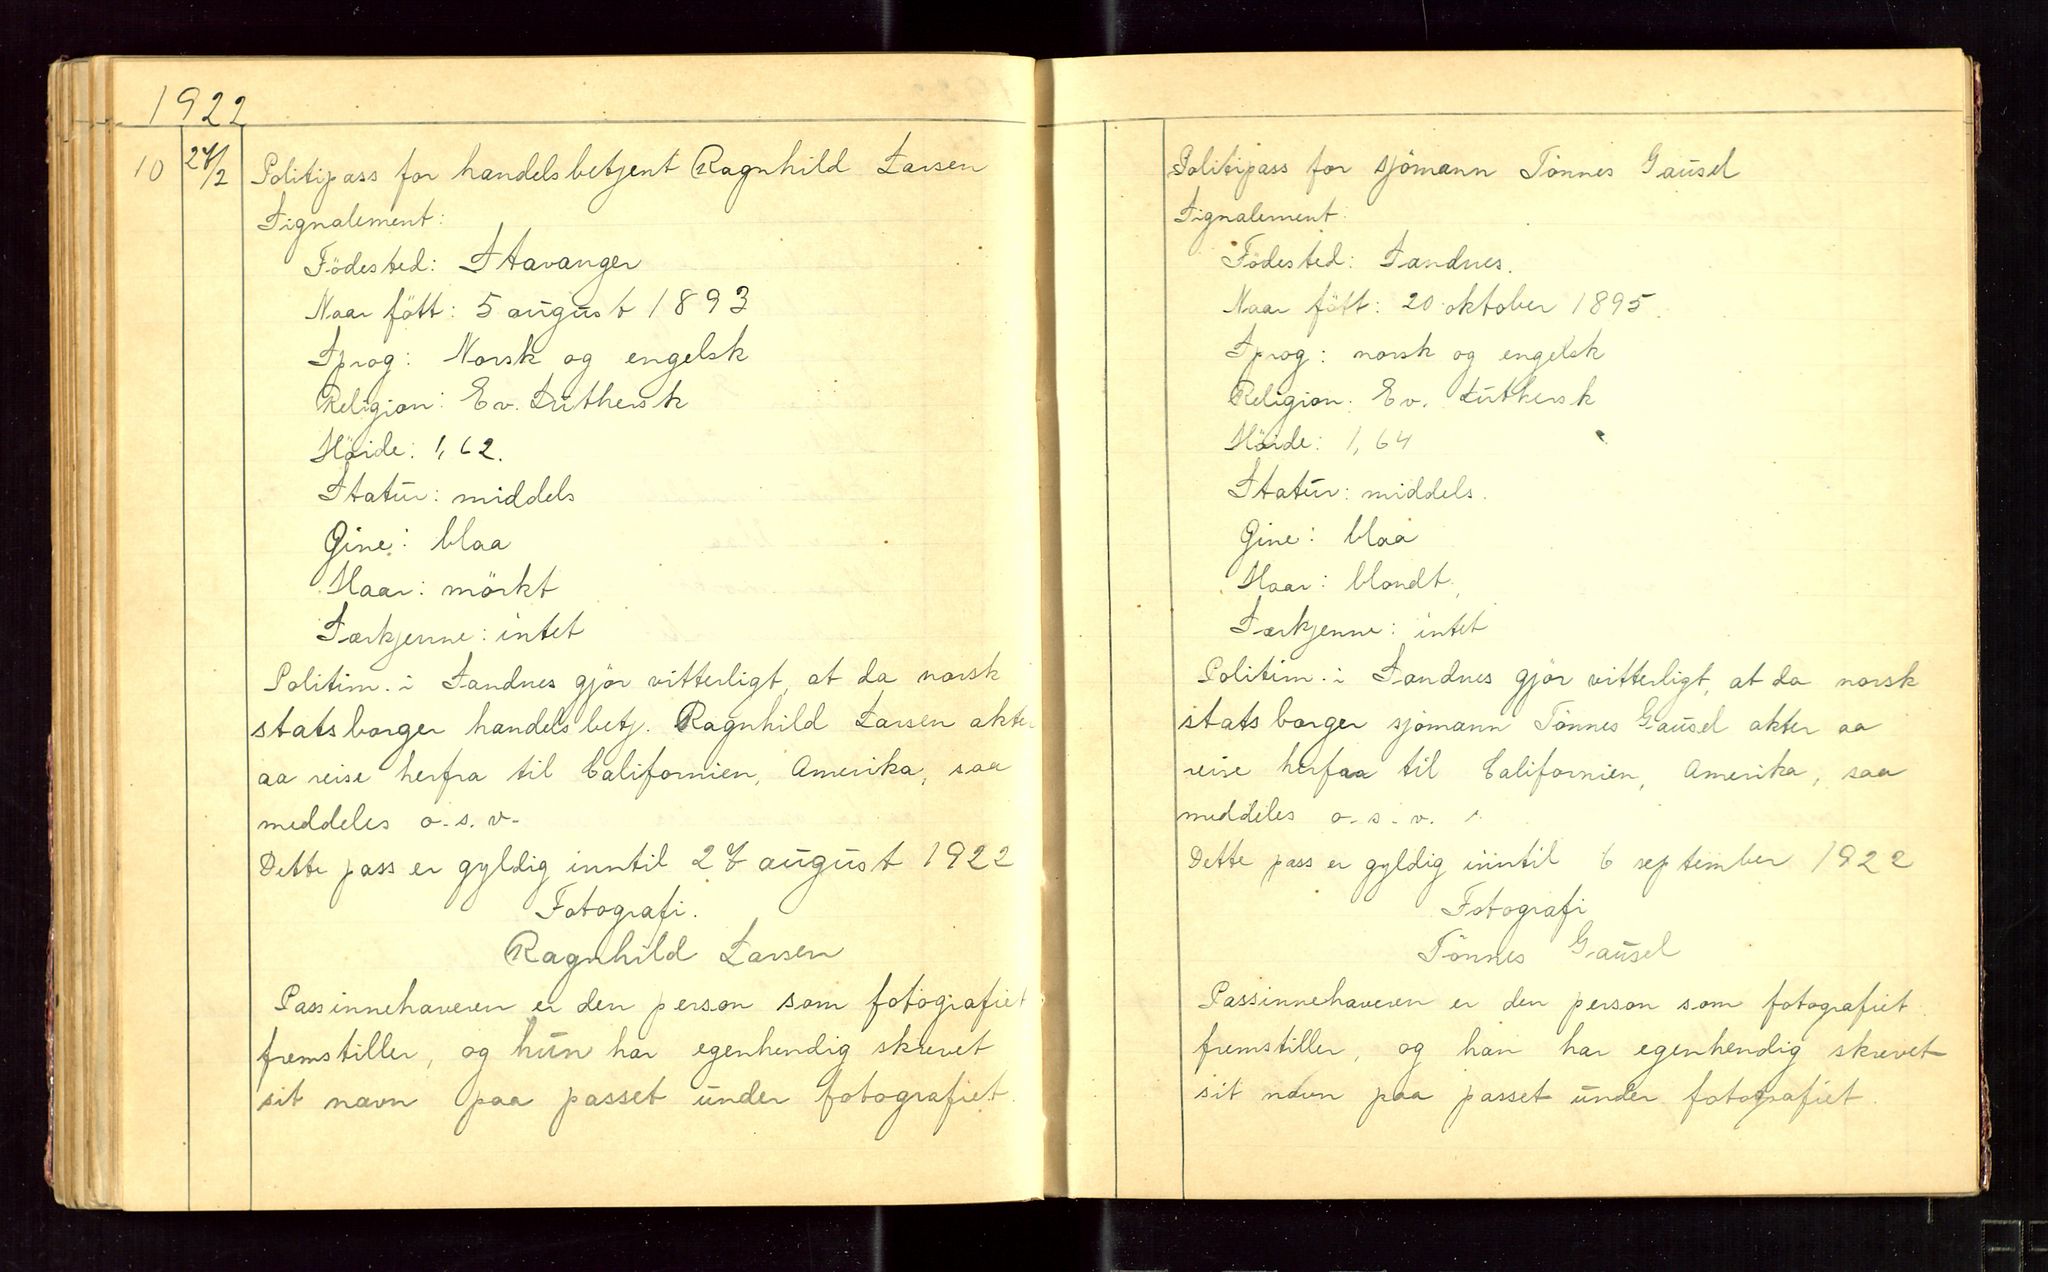 1922
10 27/2 Politipass for handelsbetjent Ragnhild Larsen
Signalement:
Födested: Stavanger
Naar fött: 5 august 1893
Sprog: Norsk og engelsk
Religion: Ev. Luthersk
Höide: 1,62.
Statur: middels
Öine: blaa
Haar: mörkt
Særkjenne: intet
Politim. i Sandnes gjör vitterligt, at da norsk
statsborger handelsbetj. Ragnhild Larsen akter
aa reise herfra til Californien, Amerika, saa
meddeles o.s.v.
Dette pass er gyldig inntil 27 august 1922
Fotografi.
Ragnhild Larsen
Passinnehaveren er den person som fotografiet
fremstiller, og hun har egenhendig skrevet
sit navn paa passet under fotografiet.
Politipass for sjömann Tönnes Gausel
Signalement:
Födested: Sandnes.
Naar fött: 20 oktober 1895.
Sprog: norsk og engelsk
Religion. Ev. Luthersk
Höide: 1,64
Statur: middels.
Öine: blaa
Haar: blondt.
Særkjenne: intet
Politim. i Sandnes gjör vitterligt, at da norsk
statsborger sjömann Tönnes Gausel akter aa
reise herfaa til Californien, Amerika, saa
meddeles o.s.v.
Dette pass er gyldig inntil 6 september 1922
Fotografi
Tönnes Gausel
Passinnehaveren er den person som fotografiet
fremstiller, og han har egenhendig skrevet
sit navn paa passet under fotografiet.